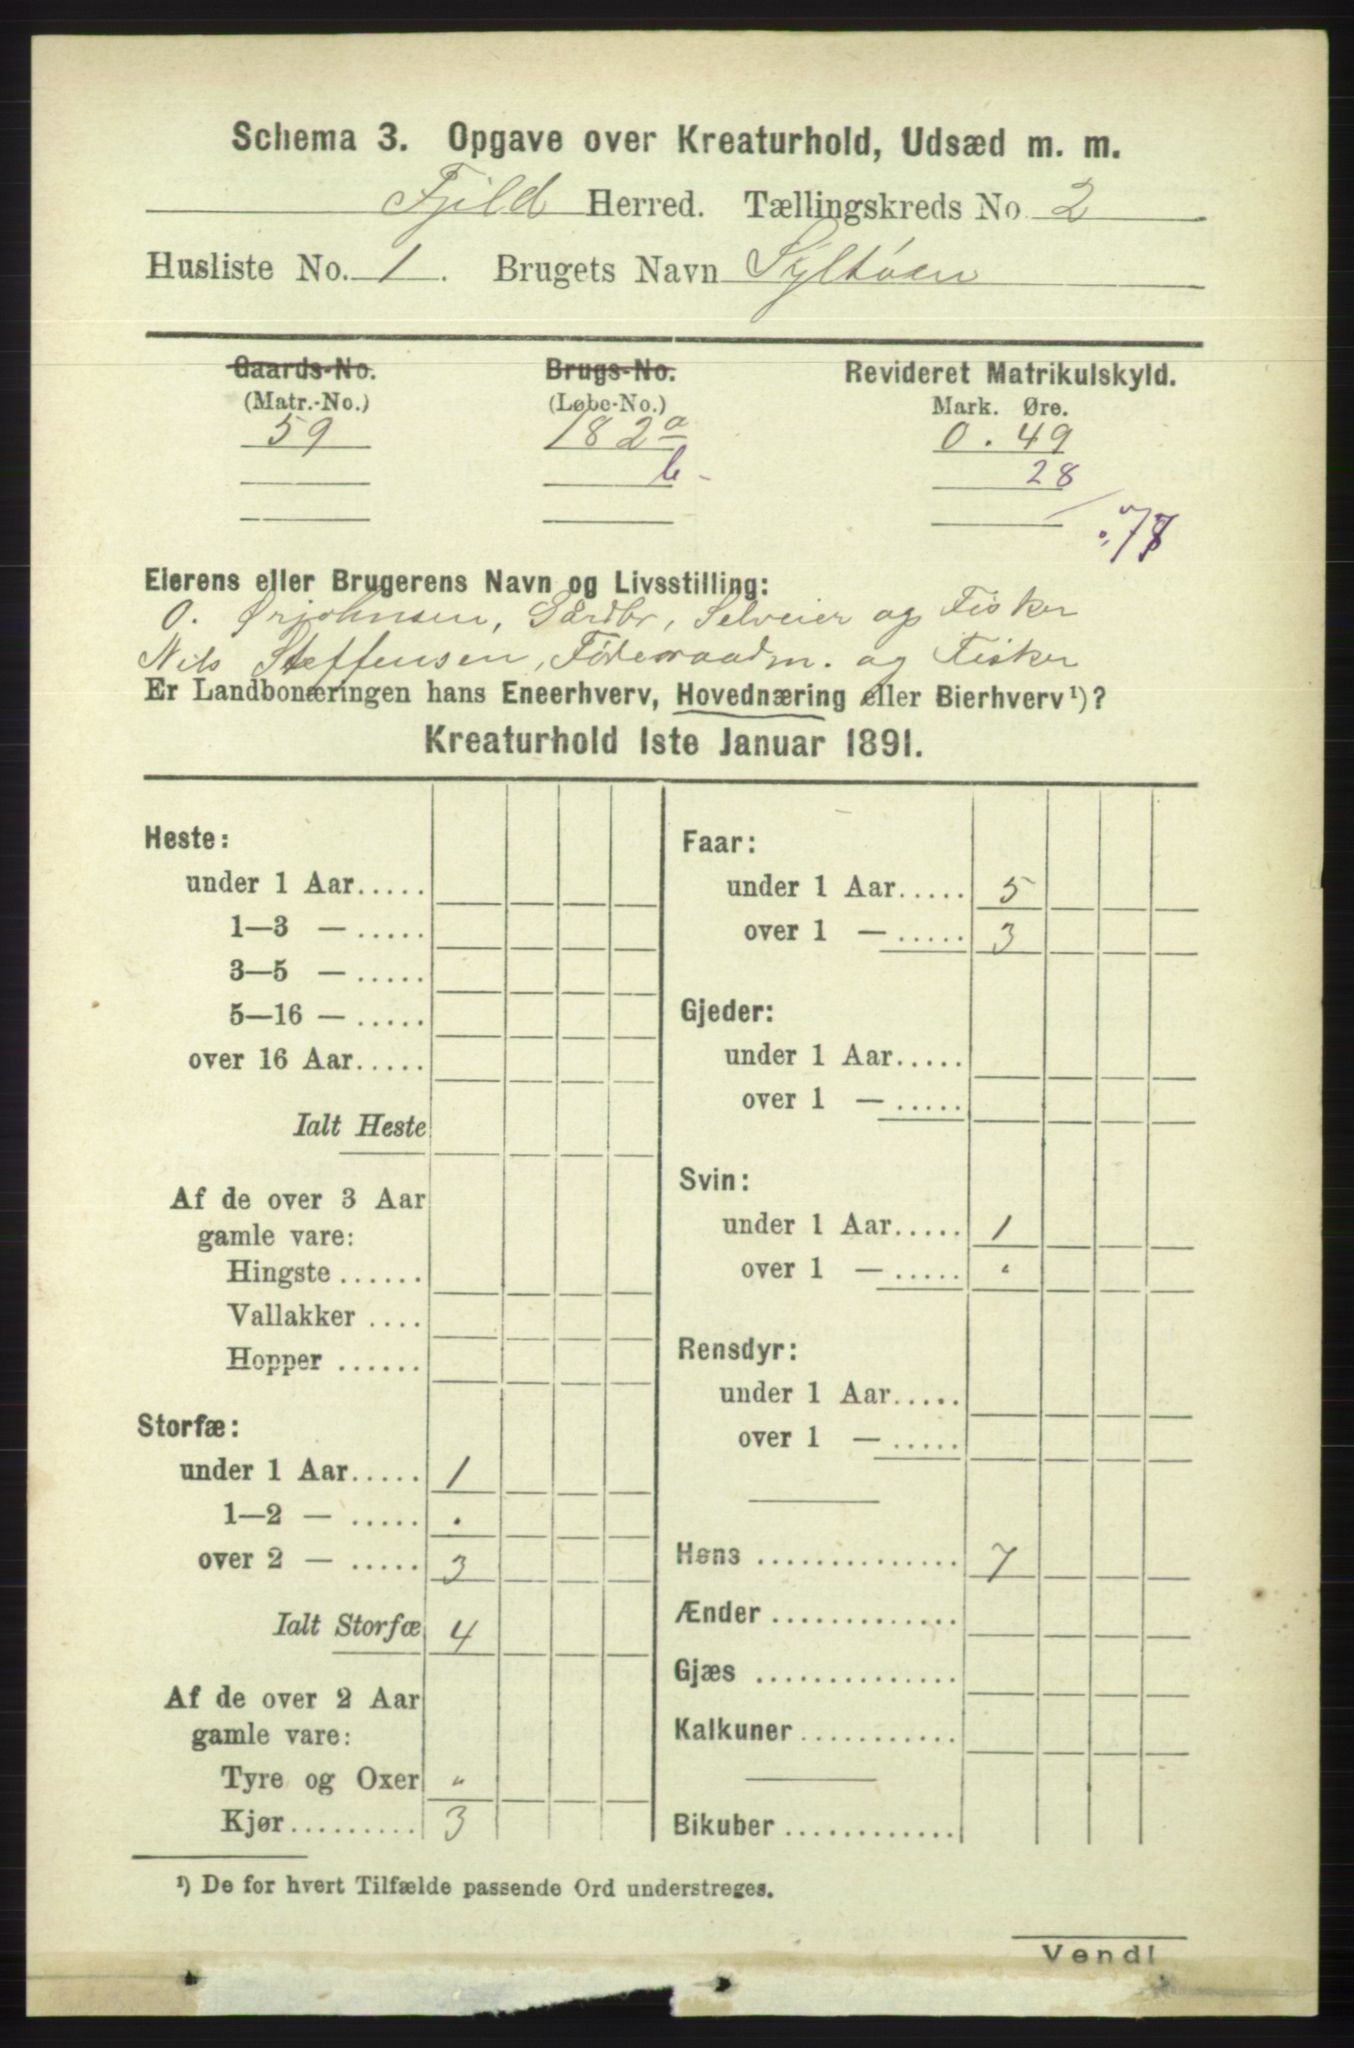 Schema 3. Opgave over Kreaturhold, Udsæd m. m.
Fjeld Herred. Tællingskreds No 2
Husliste No. 1. Brugets Navn Syltøen
Gaards-No. Brugs-No. Revideret Matrikulskyld.
(Matr.-No.) (Løbe-No.) Mark. Øre.
59 182 a 0. 49
b 28
Eierens eller Brugerens Navn og Livsstilling:
O. Ørjohnsen, Gårdbr, Selveier og Fisker
Nils Steffensen, Føderaadm. og Fisker
Er Landbonæringen hans Eneerhverv, Hovednæring eller Bierhverv ¹)?
Kreaturhold 1ste Januar 1891.
Heste:
under 1 Aar.....
1—3 — .....
3—5 — .....
5—16 — .....
over 16 Aar.....
Ialt Heste
Af de over 3 Aar
gamle vare:
Hingste ......
Vallakker ....
Hopper ......
Storfæ:
under 1 Aar..... 1
1—2 — ..... .
over 2 — ..... 3
Ialt Storfæ 4
Af de over 2 Aar
gamle vare:
Tyre og Oxer "
Kjør......... 3
Faar:
under 1 Aar..... 5
over 1 — ..... 3
Gjeder:
under 1 Aar.....
over 1 — .....
Svin:
under 1 Aar..... 1
over 1 — ..... "
Rensdyr:
under 1 Aar.....
over 1 — .....
Høns .............. 7
Ænder .............
Gjæs ..............
Kalkuner ...........
Bikuber ............
¹) De for hvert Tilfælde passende Ord understreges.
Vend!